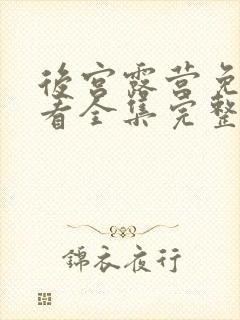 後宫露营免
看全集完整
錦衣夜行